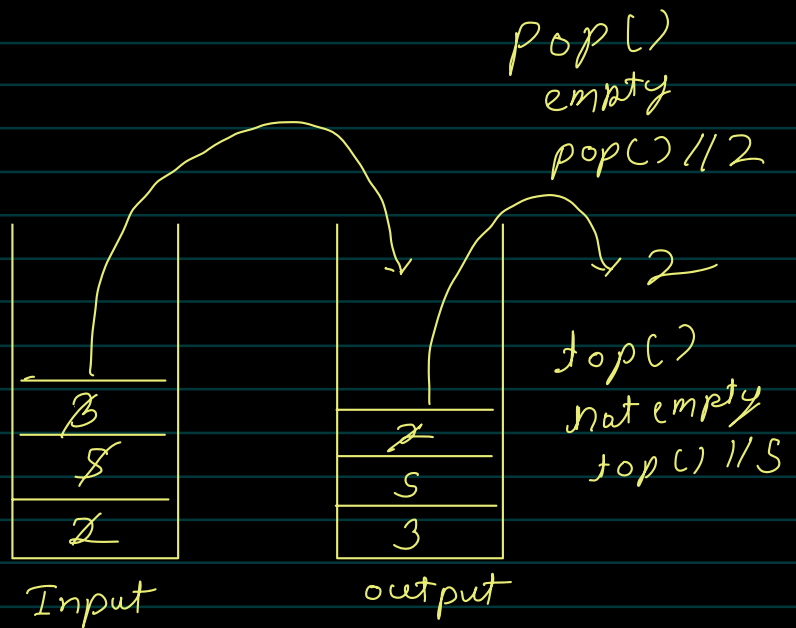 pop()
empty
pop() // 2
2
top()
not empty
top() // 5
3
5
2
Input
2
5
3
output